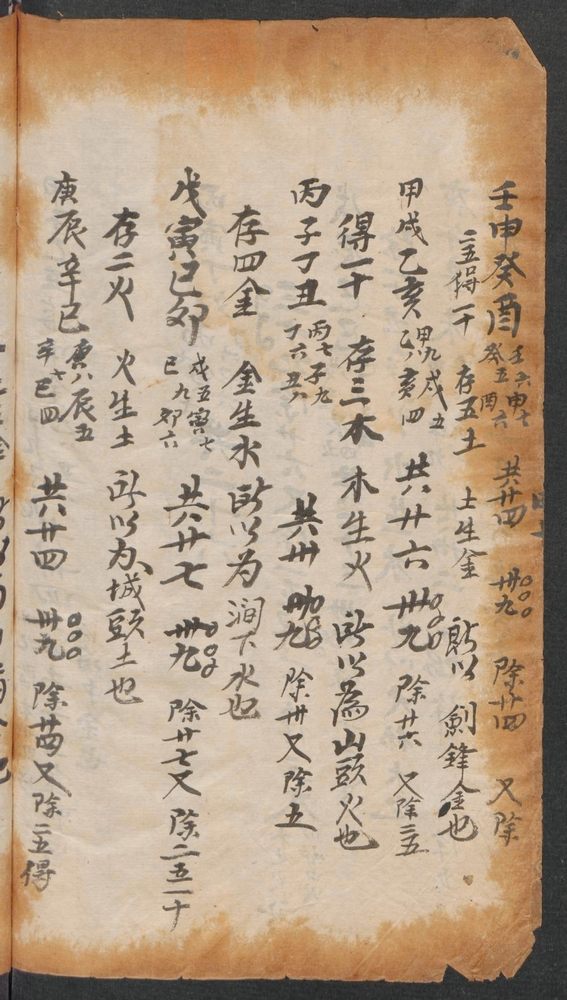 壬申癸酉 壬六申七 癸五酉六 共廿四 卌九 除廿四 又除
二五得一十 存五土 土生金 所以 劍鋒金也
甲戌乙亥 甲九戌五 乙八亥四 共廿六 卌九 除廿六 又除二五
得一十 存三木 木生火 所以為山頭火也
丙子丁丑 丙七子九 丁六丑八 共卅 卌九 除卅又除五
存四金 金生水 所以为 澗下水也
戊寅己卯 戊五寅七 己九卯六 共廿七 卌九 除廿七又 除二五一十
存二火 火生土 所以为城頭土也
庚辰辛巳 庚八辰五 辛七巳四 共廿四 卌九 除廿四又除二五得